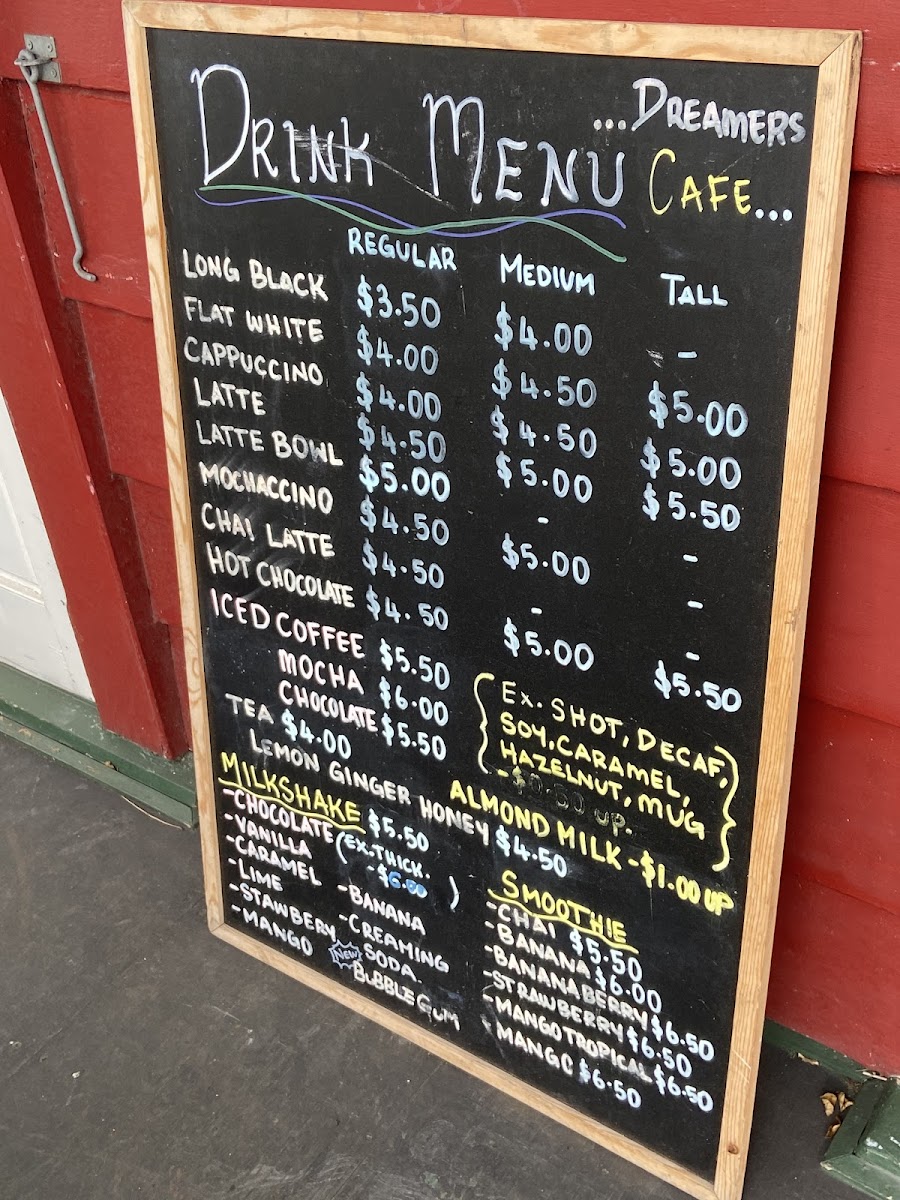 DRINK MENU ...DREAMERS
CAFE...
REGULAR MEDIUM TALL
LONG BLACK $3.50 $4.00 -
FLAT WHITE $4.00 $4.50 $5.00
CAPPUCCINO $4.00 $4.50 $5.00
LATTE $4.50 $5.00 $5.50
LATTE BOWL $5.00 - -
MOCHACCINO $4.50 $5.00 -
CHAI LATTE $4.50 - -
HOT CHOCOLATE $4.50 $5.00 $5.50
ICED COFFEE $5.50
MOCHA $6.00
CHOCOLATE $5.50
{EX. SHOT, DECAF,
SOY, CARAMEL,
HAZELNUT, MUG
-$0.50 UP.}
ALMOND MILK -$1.00 UP
TEA $4.00
LEMON GINGER HONEY $4.50
MILKSHAKE $5.50
(EX. THICK.
-$6.00)
-CHOCOLATE
-VANILLA
-CARAMEL
-LIME
-STAWBERY
-MANGO
-BANANA
-CREAMING
SODA
NEW BUBBLE GUM
SMOOTHIE
-CHAI $5.50
-BANANA $6.00
-BANANABERRY $6.50
-STRAWBERRY $6.50
-MANGO TROPICAL $6.50
-MANGO $6.50